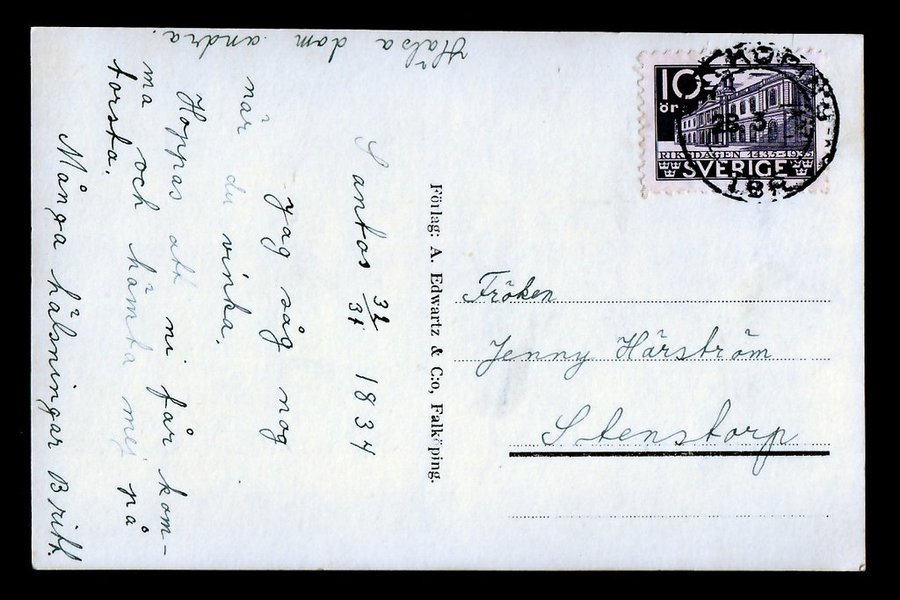 Hälsa dom andra.
Santos 32/31 1834
Jag såg nog
när du vinka.
Hoppas att ni får kom-
ma och hämta mej på
torsta.
Många hälsningar Britt.
Förlag: A. Edwartz & C:o, Falköping.
10
ör
RIKSDAGEN 1435-1935
SVERIGE
Fröken
Jenny Hårström
Stenstorp